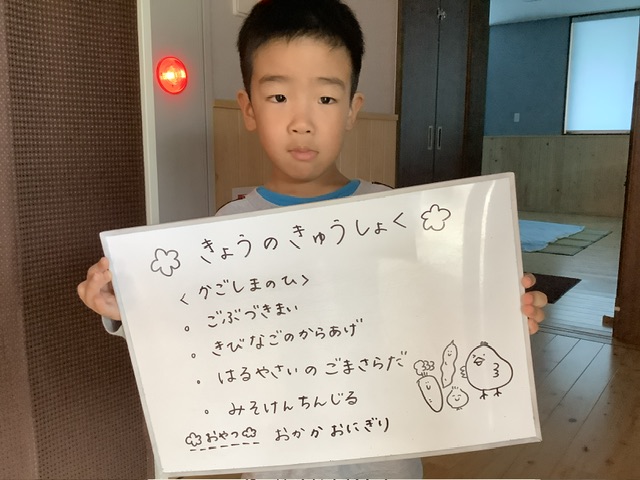 きょうのきゅうしょく
<かごしまのひ>
。ごぶづきまい
。きびなごのからあげ
。はるやさいのごまさらだ
。みそけんちんじる
おやつ おかかおにぎり